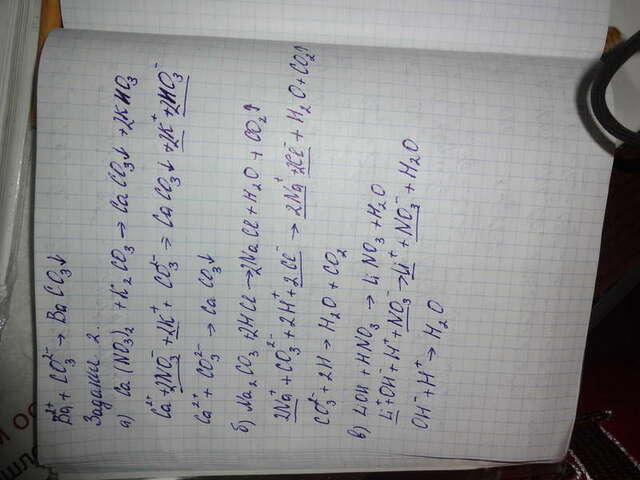 Ba²⁺ + CO₃²⁻ → BaCO₃↓
Задание 2.
а) Ca(NO₃)₂ + K₂CO₃ → CaCO₃↓ + 2KNO₃
Ca²⁺ + 2NO₃⁻ + 2K⁺ + CO₃²⁻ → CaCO₃↓ + 2K⁺ + 2NO₃⁻
Ca²⁺ + CO₃²⁻ → CaCO₃↓
б) Na₂CO₃ + 2HCl → 2NaCl + H₂O + CO₂↑
2Na⁺ + CO₃²⁻ + 2H⁺ + 2Cl⁻ → 2Na⁺ + 2Cl⁻ + H₂O + CO₂↑
CO₃²⁻ + 2H → H₂O + CO₂
в) LiOH + HNO₃ → LiNO₃ + H₂O
Li⁺ + OH⁻ + H⁺ + NO₃⁻ → Li⁺ + NO₃⁻ + H₂O
OH⁻ + H⁺ → H₂O